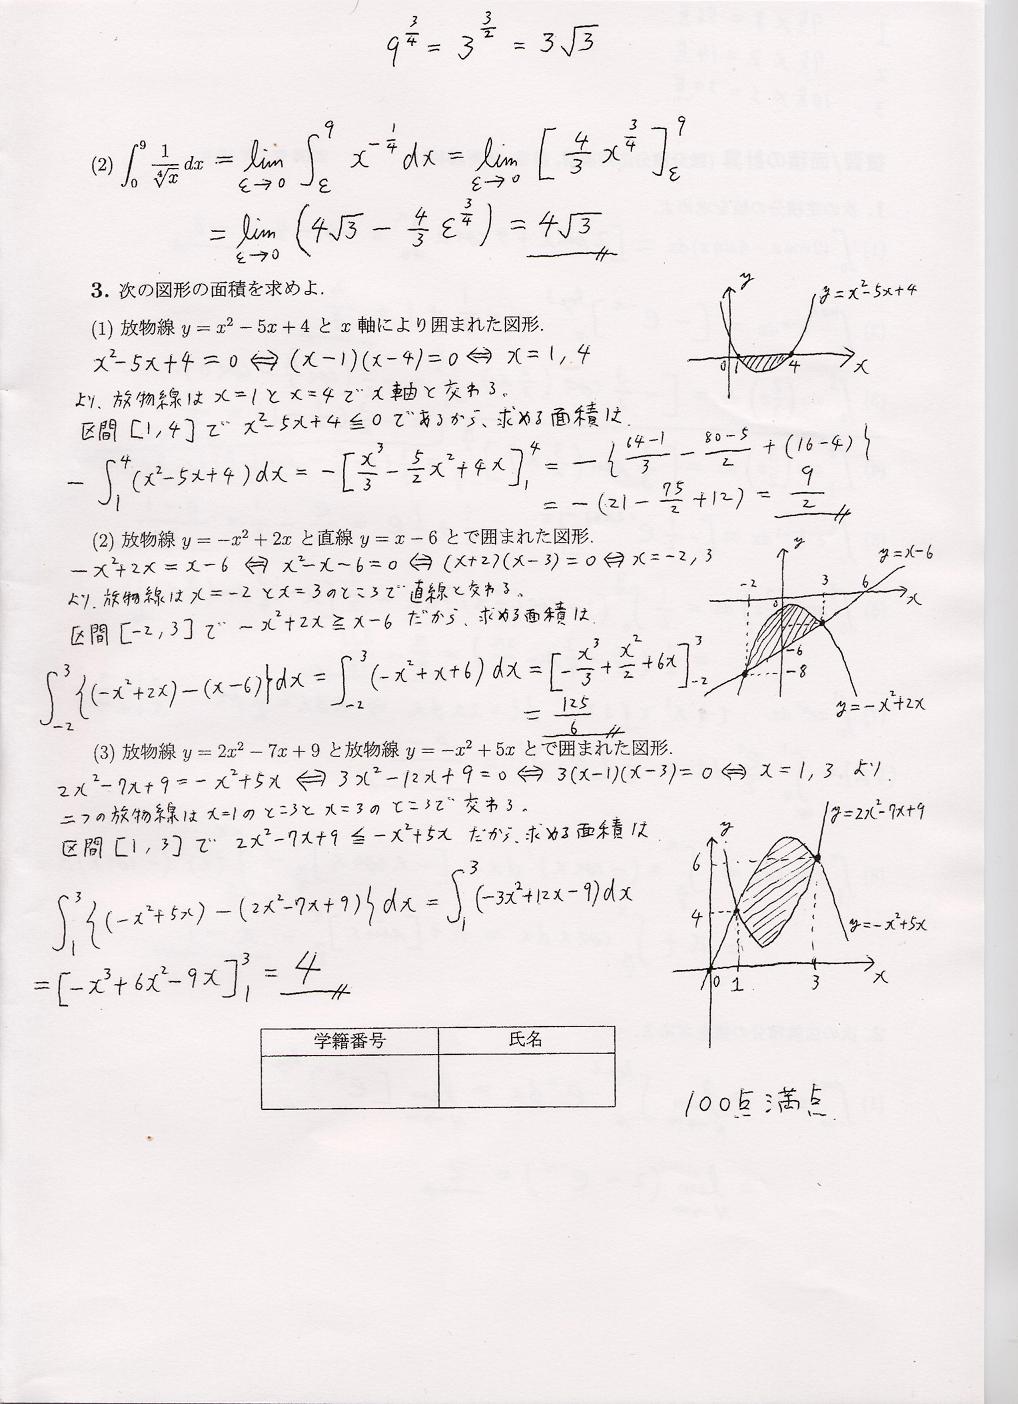 9^{3/4} = 3^{3/2} = 3√3
(2) ∫_0^9 1/∜x dx = lim_{ε→0} ∫_ε^9 x^{-1/4} dx = lim_{ε→0} [4/3 x^{3/4}]_ε^9
= lim_{ε→0} (4√3 − 4/3 ε^{3/4}) = 4√3
3. 次の図形の面積を求めよ.
(1) 放物線 y = x² − 5x + 4 と x 軸により囲まれた図形.
x²−5x+4 = 0 ⇔ (x−1)(x−4) = 0 ⇔ x = 1, 4
より、放物線は x=1 と x=4 で x 軸と交わる。
区間 [1,4] で x²−5x+4 ≦ 0 であるから、求める面積は
− ∫_1^4 (x²−5x+4) dx = −[x³/3 − 5/2 x² + 4x]_1^4 = −{(64−1)/3 − (80−5)/2 + (16−4)}
= −(21 − 75/2 + 12) = 9/2
y=x²−5x+4
y
0 1 4 x
(2) 放物線 y = −x² + 2x と直線 y = x − 6 とで囲まれた図形.
−x²+2x = x−6 ⇔ x²−x−6 = 0 ⇔ (x+2)(x−3) = 0 ⇔ x = −2, 3
より、放物線は x = −2 と x = 3 のところで直線と交わる。
区間 [−2, 3] で −x²+2x ≧ x−6 だから、求める面積は
∫_{-2}^3 {(−x²+2x)−(x−6)} dx = ∫_{-2}^3 (−x²+x+6) dx = [−x³/3 + x²/2 + 6x]_{-2}^3
= 125/6
y
y=x−6
−2 3 6 x
0
−6
−8
y=−x²+2x
(3) 放物線 y = 2x² − 7x + 9 と放物線 y = −x² + 5x とで囲まれた図形.
2x²−7x+9 = −x²+5x ⇔ 3x²−12x+9 = 0 ⇔ 3(x−1)(x−3) = 0 ⇔ x = 1, 3 より、
二つの放物線は x=1 のところと x=3 のところで交わる。
区間 [1, 3] で 2x²−7x+9 ≦ −x²+5x だから、求める面積は
∫_1^3 {(−x²+5x)−(2x²−7x+9)} dx = ∫_1^3 (−3x²+12x−9) dx
= [−x³+6x²−9x]_1^3 = 4
y=2x²−7x+9
y
6
4
y=−x²+5x
0 1 3 x
学籍番号 氏名
100点満点